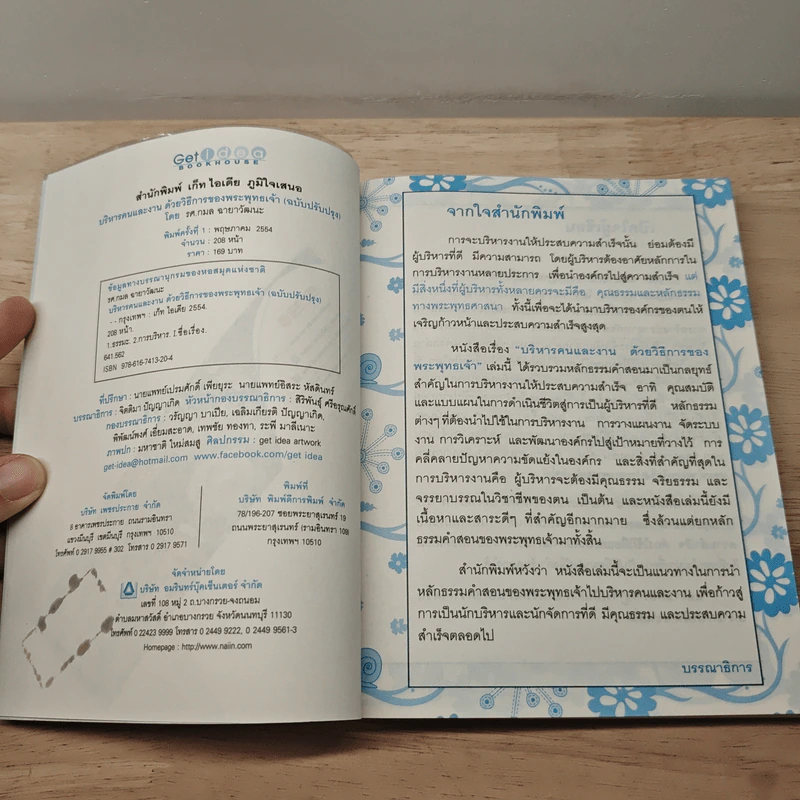 Get idea
BOOKHOUSE
สำนักพิมพ์ เก็ท ไอเดีย ภูมิใจเสนอ
บริหารคนและงาน ด้วยวิธีการของพระพุทธเจ้า (ฉบับปรับปรุง)
โดย รศ.กมล ฉายาวัฒนะ
พิมพ์ครั้งที่ 1 : พฤษภาคม 2554
จำนวน : 208 หน้า
ราคา : 169 บาท
ข้อมูลทางบรรณานุกรมของหอสมุดแห่งชาติ
รศ.กมล ฉายาวัฒนะ
บริหารคนและงาน ด้วยวิธีการของพระพุทธเจ้า (ฉบับปรับปรุง)
- - กรุงเทพฯ : เก็ท ไอเดีย 2554.
208 หน้า.
1.ธรรมะ. 2.การบริหาร. I.ชื่อเรื่อง.
641.562
ISBN 978-616-7413-20-4
ที่ปรึกษา : นายแพทย์เปรมศักดิ์ เพียยุระ นายแพทย์อิสระ หัสดินทร์
บรรณาธิการ : จิตติมา ปัญญาเกิด หัวหน้ากองบรรณาธิการ : สิริพันธุ์ ศรีอรุณศักดิ์
กองบรรณาธิการ : วรัญญา บาเปีย, เฉลิมเกียรติ ปัญญาเกิด,
พิพัฒน์พงศ์ เอี่ยมสะอาด, เทพชัย ทองทา, ระพี มาลีเนาะ
ภาพปก : มหาชาติ ใหม่สมสู่ ศิลปกรรม : get idea artwork
get-idea@hotmail.com www.facebook.com/get idea
จัดพิมพ์โดย
บริษัท เพชรประกาย จำกัด
9 อาคารเพชรประกาย ถนนรามอินทรา
แขวงมีนบุรี เขตมีนบุรี กรุงเทพฯ 10510
โทรศัพท์ 0 2917 9955 # 302 โทรสาร 0 2917 9571
พิมพ์ที่
บริษัท พิมพ์ดีการพิมพ์ จำกัด
78/196-207 ซอยพระยาสุเรนทร์ 19
ถนนพระยาสุเรนทร์ (รามอินทรา 109)
กรุงเทพฯ 10510
จัดจำหน่ายโดย
บริษัท อมรินทร์บุ๊คเซ็นเตอร์ จำกัด
เลขที่ 108 หมู่ 2 ถ.บางกรวย-จงถนอม
ตำบลมหาสวัสดิ์ อำเภอบางกรวย จังหวัดนนทบุรี 11130
โทรศัพท์ 0 22423 9999 โทรสาร 0 2449 9222, 0 2449 9561-3
Homepage : http://www.naiin.com
จากใจสำนักพิมพ์
การจะบริหารงานให้ประสบความสำเร็จนั้น ย่อมต้องมี
ผู้บริหารที่ดี มีความสามารถ โดยผู้บริหารต้องอาศัยหลักการใน
การบริหารงานหลายประการ เพื่อนำองค์กรไปสู่ความสำเร็จ แต่
มีสิ่งหนึ่งที่ผู้บริหารทั้งหลายควรจะมีคือ คุณธรรมและหลักธรรม
ทางพระพุทธศาสนา ทั้งนี้เพื่อจะได้นำมาบริหารองค์กรของตนให้
เจริญก้าวหน้าและประสบความสำเร็จสูงสุด
หนังสือเรื่อง “บริหารคนและงาน ด้วยวิธีการของ
พระพุทธเจ้า” เล่มนี้ ได้รวบรวมหลักธรรมคำสอนมาเป็นกลยุทธ์
สำคัญในการบริหารงานให้ประสบความสำเร็จ อาทิ คุณสมบัติ
และแบบแผนในการดำเนินชีวิตสู่การเป็นผู้บริหารที่ดี หลักธรรม
ต่างๆ ที่ต้องนำไปใช้ในการบริหารงาน การวางแผนงาน จัดระบบ
งาน การวิเคราะห์ และพัฒนาองค์กรไปสู่เป้าหมายที่วางไว้ การ
คลี่คลายปัญหาความขัดแย้งในองค์กร และสิ่งที่สำคัญที่สุดใน
การบริหารงานคือ ผู้บริหารจะต้องมีคุณธรรม จริยธรรม และ
จรรยาบรรณในวิชาชีพของตน เป็นต้น และหนังสือเล่มนี้ยังมี
เนื้อหาและสาระดีๆ ที่สำคัญอีกมากมาย ซึ่งล้วนแต่ยกหลัก
ธรรมคำสอนของพระพุทธเจ้ามาทั้งสิ้น
สำนักพิมพ์หวังว่า หนังสือเล่มนี้จะเป็นแนวทางในการนำ
หลักธรรมคำสอนของพระพุทธเจ้าไปบริหารคนและงาน เพื่อก้าวสู่
การเป็นนักบริหารและนักจัดการที่ดี มีคุณธรรม และประสบความ
สำเร็จตลอดไป
บรรณาธิการ